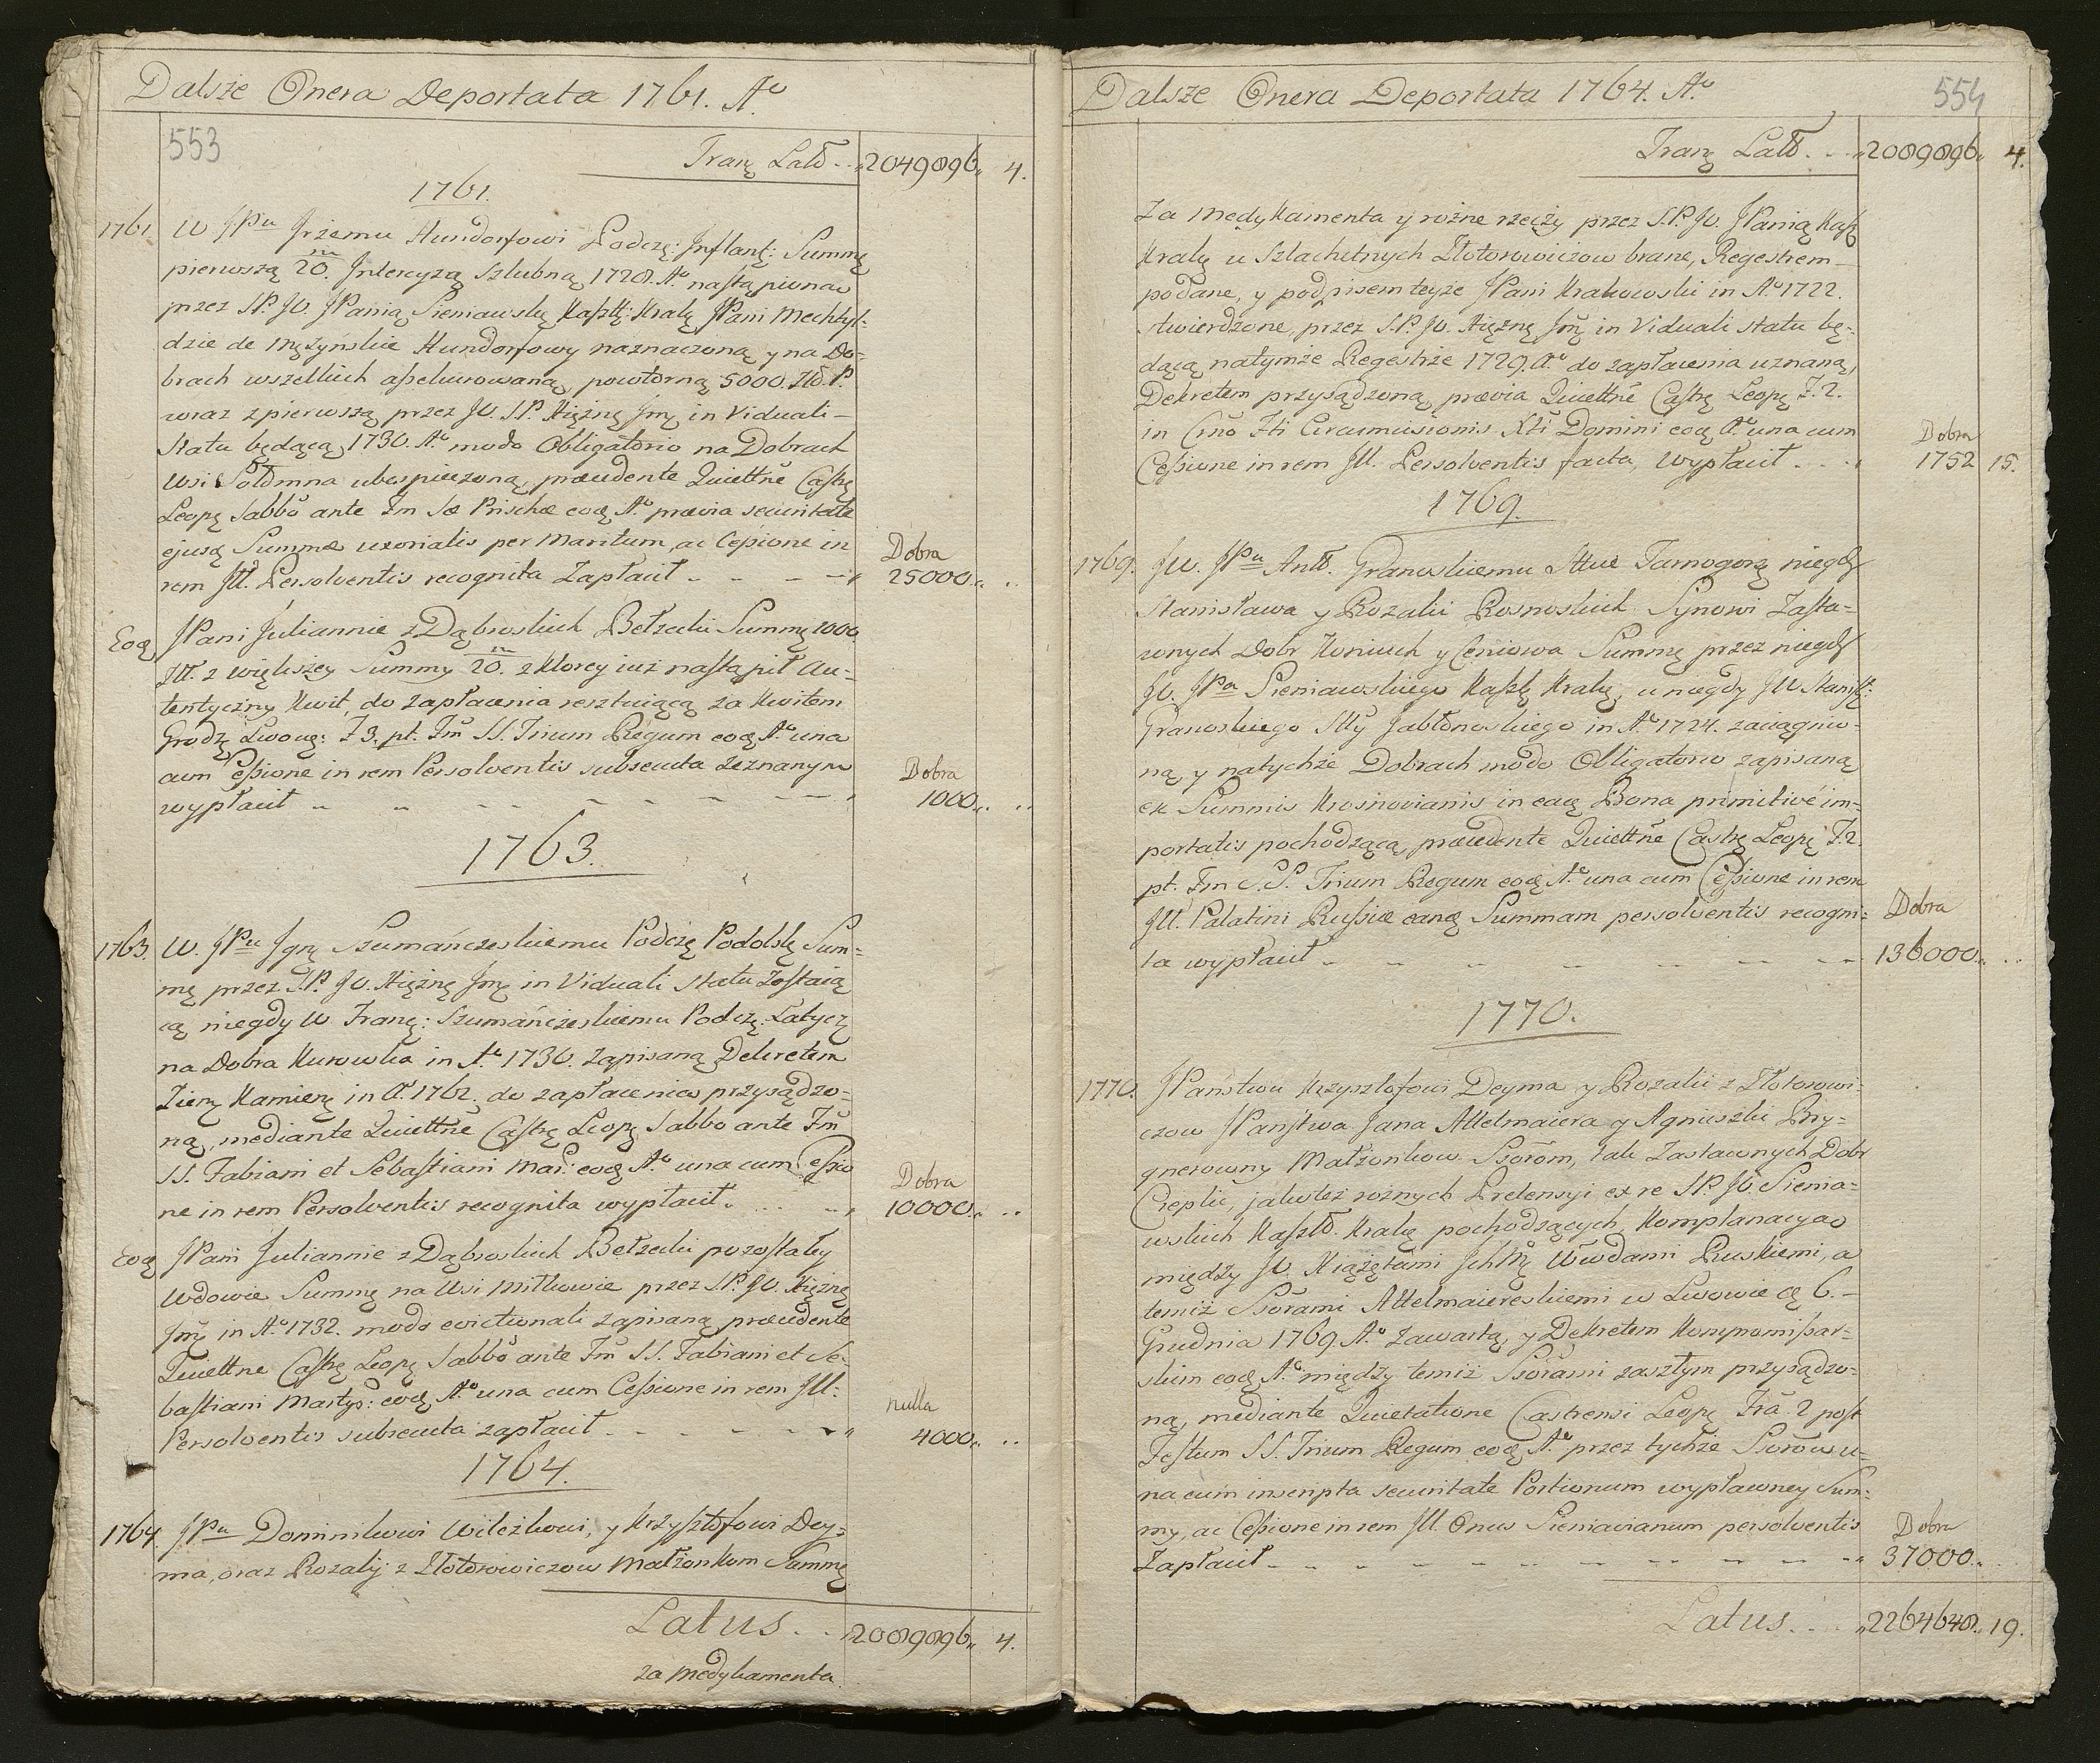 Dalsze Onera Deportata 1761. Aº
553
Tranz Latº .. 2049896,, 4.
1761.
1761 W JPu Jrzemu Hundorfowi Podczę: Jnflantę: Summę
pierwszą 20.m Jntercyzą Szlubną 1728. Aº nastąpioną
przez SP. JO. JPanią Sieniawskę Kasztę: Kralę JPani Mechtyl-
dzie de Mężyńskie Hundorfowy naznaczoną y na Do=
brach wszelkich assekurowaną, powtorną 5000. Złõ. P.
wraz z pierwszą przez JO. S.P. Xiężnę Jmę in Viduali
Statu będącą 1730. Aº modo Obligatorio na Dobrach
Wsi Sołomna ubespieczoną, præcedente Quiettñe Castrę
Leopę Sabbõ ante Fm Sæ Priscæ eoq Aº prævia securitate
ejusq Summæ uxorialis per Maritum, ac Cessione in
rem Jll. Persolventis recognita Zapłacił - - - - Dobra 25000.,, ..
Eoq JPani Juliannie z Dąbroskich Bełzecki Summę 1000
Złt. z większey Summy 20.m z ktorey iuż nastąpił Au=
tentyczny Kwit, do zapłacenia resztuiącą za Kwitem
Grodz. Lwowę: F. 3. pt. Fm SS. Trium Regum eoq Aº una
cum Cessione in rem Persolventis subsecuta zeznanym
wypłacił - - - - - - Dobra 1000.,, ..
1763.
1763. W. JPu Jgnę Szumańczeskiemu Podczę Podolskę Sum=
mę przez S.P. JO. Xiężnę Jmę in Viduali Statu zostaią
cą niegdy W Franę: Szumańczeskiemu Podczę: Latyczę
na Dobra Kurowka in Aº 1736. zapisaną Dekretem
Ziemę Kamienę in Aº 1762. do zapłacenia przysądzo=
ną, mediante Quiettñe Castrę Leopę Sabbo ante Fm
SS. Fabiani et Sebastiani Mar: eoq Aº una cum Cessio
ne in rem Persolventis recognita wypłacił . - - Dobra 10000.,, ..
Eoq JPani Juliannie z Dąbroskich Bełzecki pozostałey
Wdowie Summę na Wsi Mitkowie przez S.P. JO. Xiężnę
Jmę in Aº 1732. modo evictionali zapisaną præcedente
Quiettne Castrę Leopę Sabbõ ante Fm SS. Fabiani et Se=
bastiani Martyr: eoq Aº una cum Cessione in rem Jll:
Persolventis subsecuta zapłacił - - - - - nulla 4000.,, ..
1764.
1764. JPu Dominikowi Wilczkowi, y Krzysztofowi Dey=
ma, oraz Rozalij z Złotorowiczow Małżonkom Summę
Latus. .. 2089896,, 4.
za Medykamenta
Dalsze Onera Deportata 1764. Aº
554
Tranz Latº. .. 2089896,, 4.
Za Medykamenta y rożne rzeczy przez S.P. JO. JPanią Kasz
Kralę u Szlachetnych Złotorowiczow brane, Regestrem
podane, y podpisem teyże JPani Krakowski in Aº 1722.
stwierdzone, przez S.P. JO. Xiężnę Jmę in Viduali statu bę=
dącą natymże Regestrze 1729. Aº do zapłacenia uznaną,
Dekretem przysądzoną, prævia Quiettñe Castrę Leopę F. 2.
in Crño Fti Circumcisionis Xti Domini eoq Aº una cum
Cessione in rem Jll. Persolventis facta, wypłacił . . . Dobra 1752 15.
1769.
1769. JW. JPu Antõ. Granoskiemu Sttwi Tarnogorę niegdy
Stanisława y Rozalii Rosnoskich Synowi Zasta=
wnych Dobr Koniuch y Ceniowa Summę przez niegdy
JO. JPa Sieniawskiego Kasztę Kralę, u niegdy JW Stanisł:
Granoskiego Stty Jabłonoskiego in Aº 1724. zaciągnio=
ną, y natychże Dobrach modo Obligatorio zapisaną
ex Summis Krosnovianis in eaq Bona primitive im=
portatis pochodzącą, præcedente Quiettñe Castrę Leopę F. 2.
pt. Fm S.S. Trium Regum eoq Aº una cum Cessione in rem
Jll. Palatini Russiæ eanq Summam persolventis recogni=
ta wypłacił - - - - - - - Dobra 136000.,, ..
1770.
1770. JPaństwu Krzysztofowi Deyma y Rozalii z Złotorowi=
czow JPaństwa Jana Attelmaiera y Agnieszki Bry=
gnerowny Małżonkow Ssorom, tak Zastawnych Dobr
Czeplic, jakoteż rożnych Pretensyi ex re SP. JO. Sienia=
wskich Kasztõ. Kralę pochodzących, Komplanacyą
między JO. Xiążętami JchMę Wwdami Ruskiemi, a
temiż Ssorami Attelmaiereskiemi w Lwowie dę 6.
Grudnia 1769 Aº zawartą, y Dekretem Kompromissar=
skim eoq Aº między temiż Ssorami zaszłym przysądzo=
ną, mediante Quietatione Castrensi Leopę Frã 2 post
Festum SS. Trium Regum eoq Aº przez tychże Ssorow u=
na cum inscripta securitate Portionum wypławney Sum=
my, ac Cessione in rem Jll. Onus Sieniavianum persolventis
Zapłacił - - - - - - - - Dobra 37000.,,
Latus. .. 2264648,, 19.